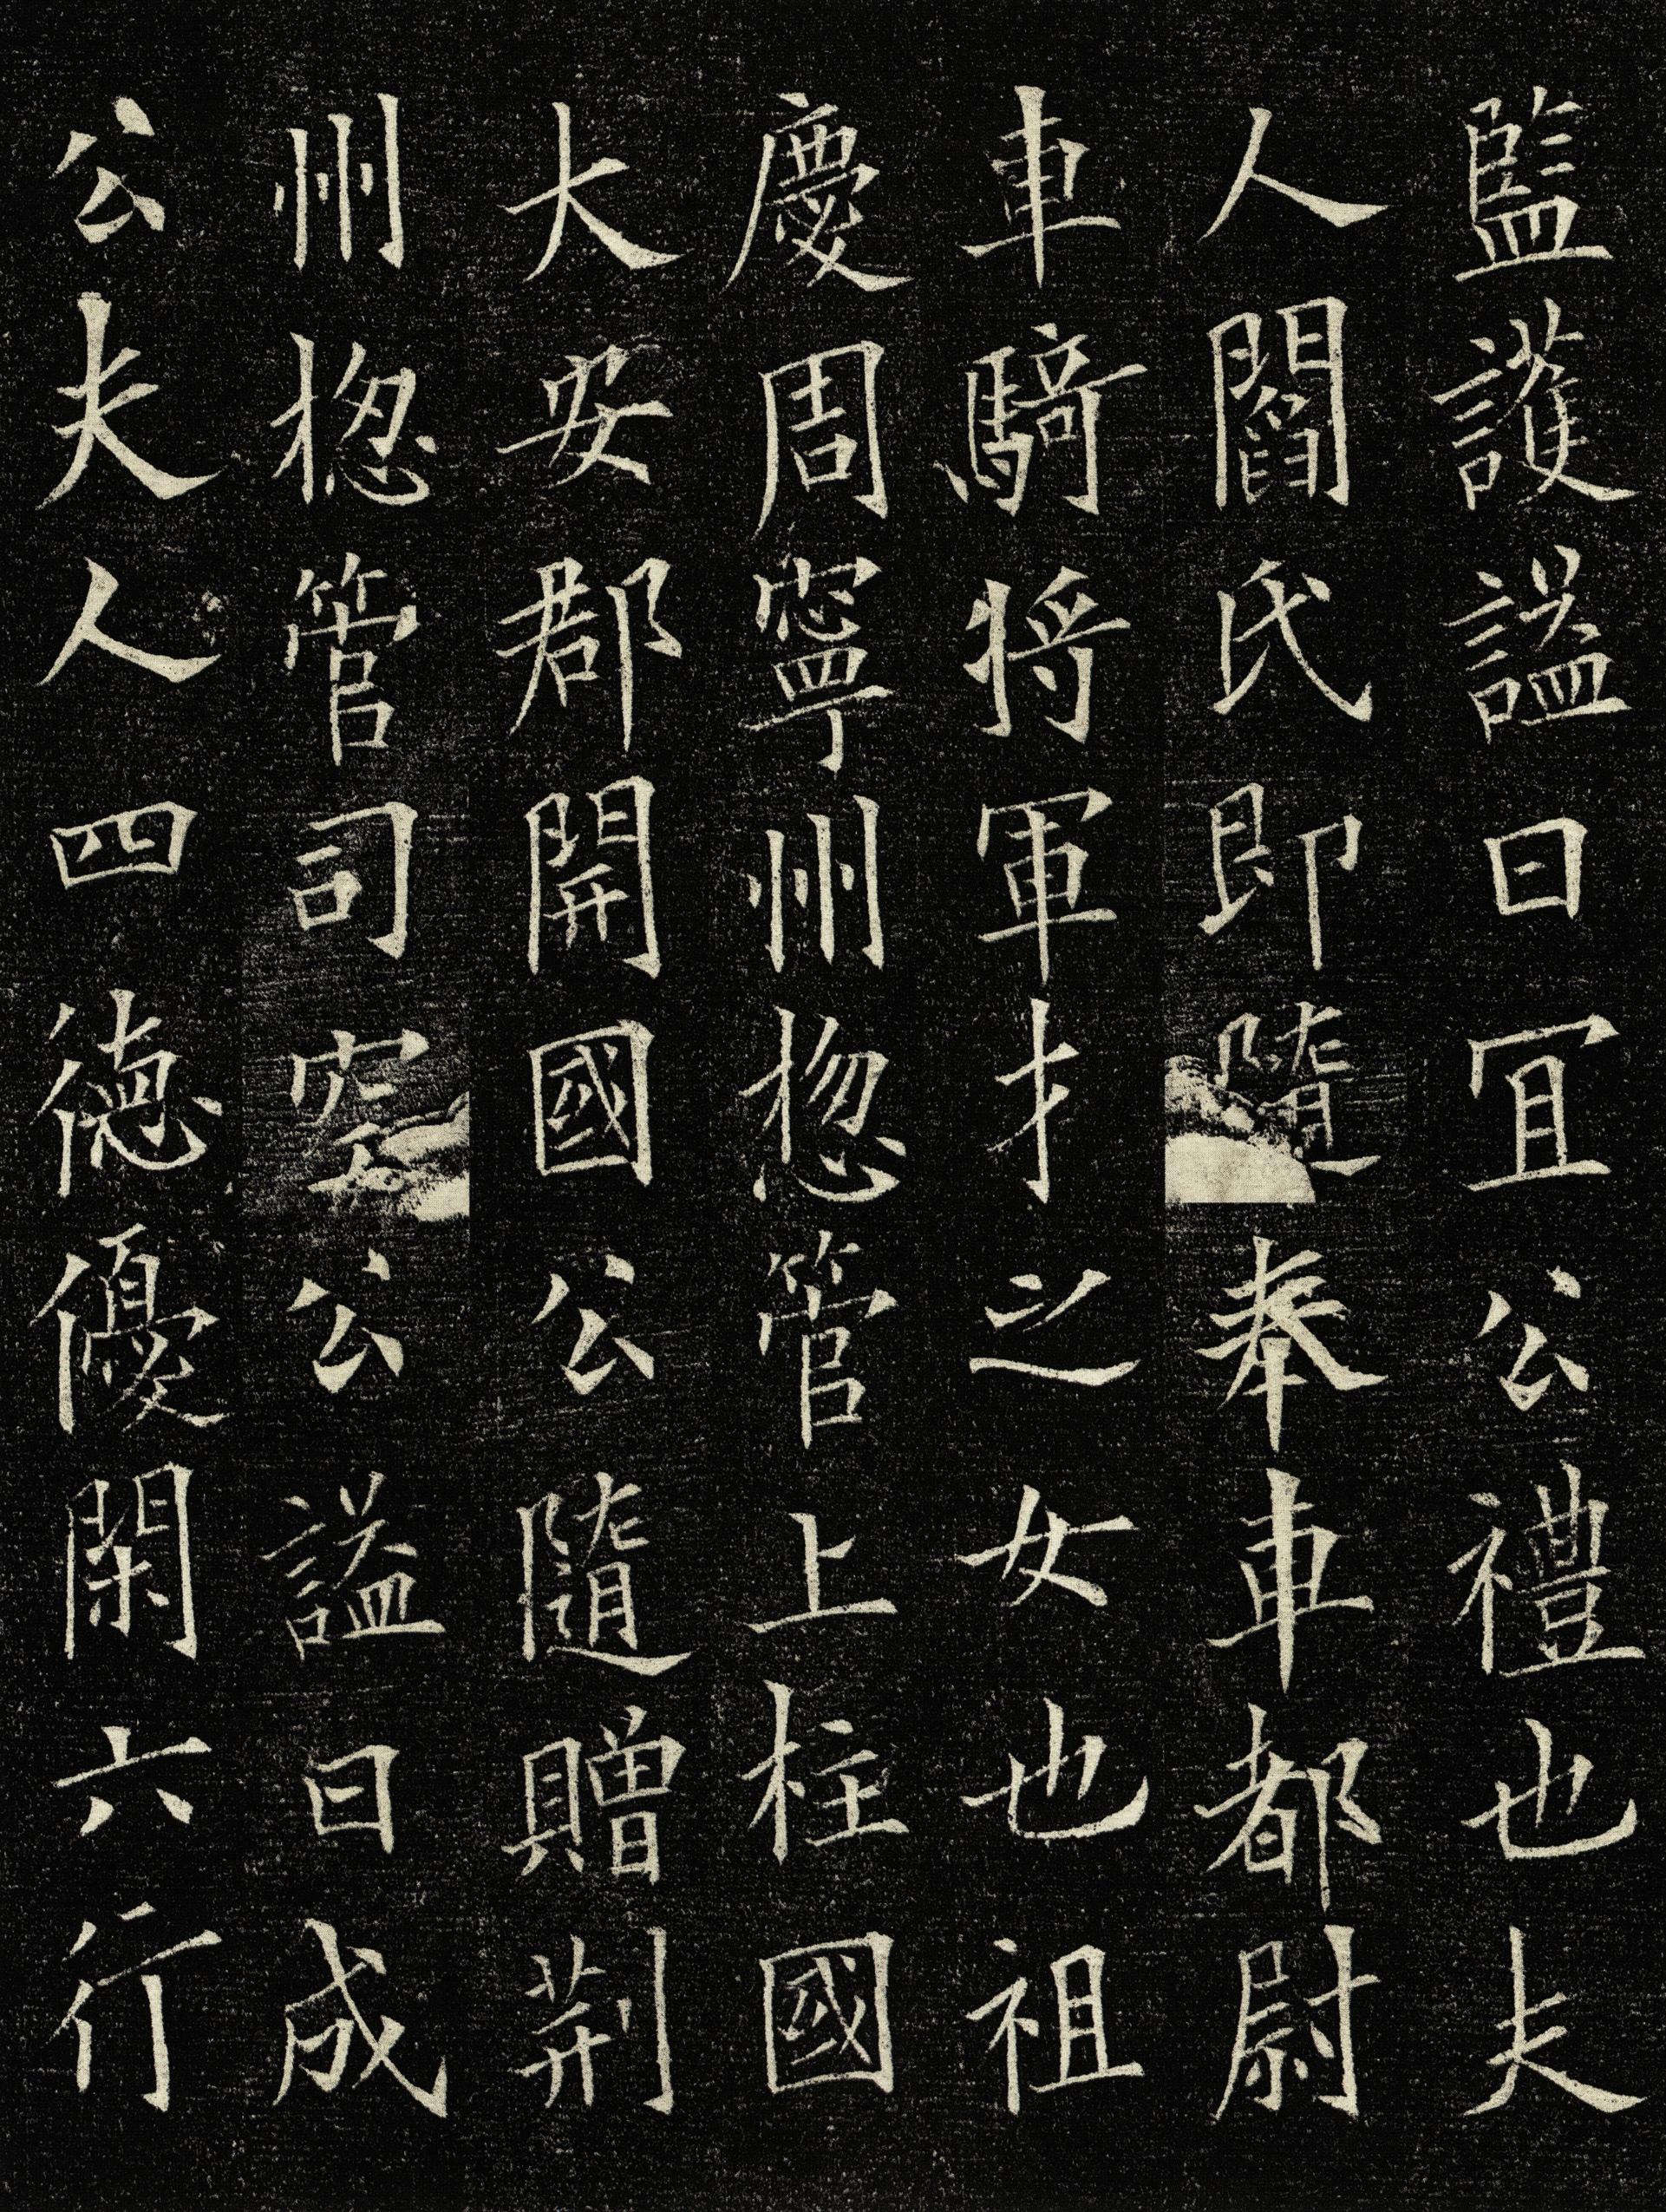 監護謚曰冝公禮也夫
人閻氏即隨奉車都尉
車騎將軍才之女也祖
慶周寧州揔管上柱國
大安郡開國公隨贈荊
州揔管司空公謚曰成
公夫人四德優閑六行